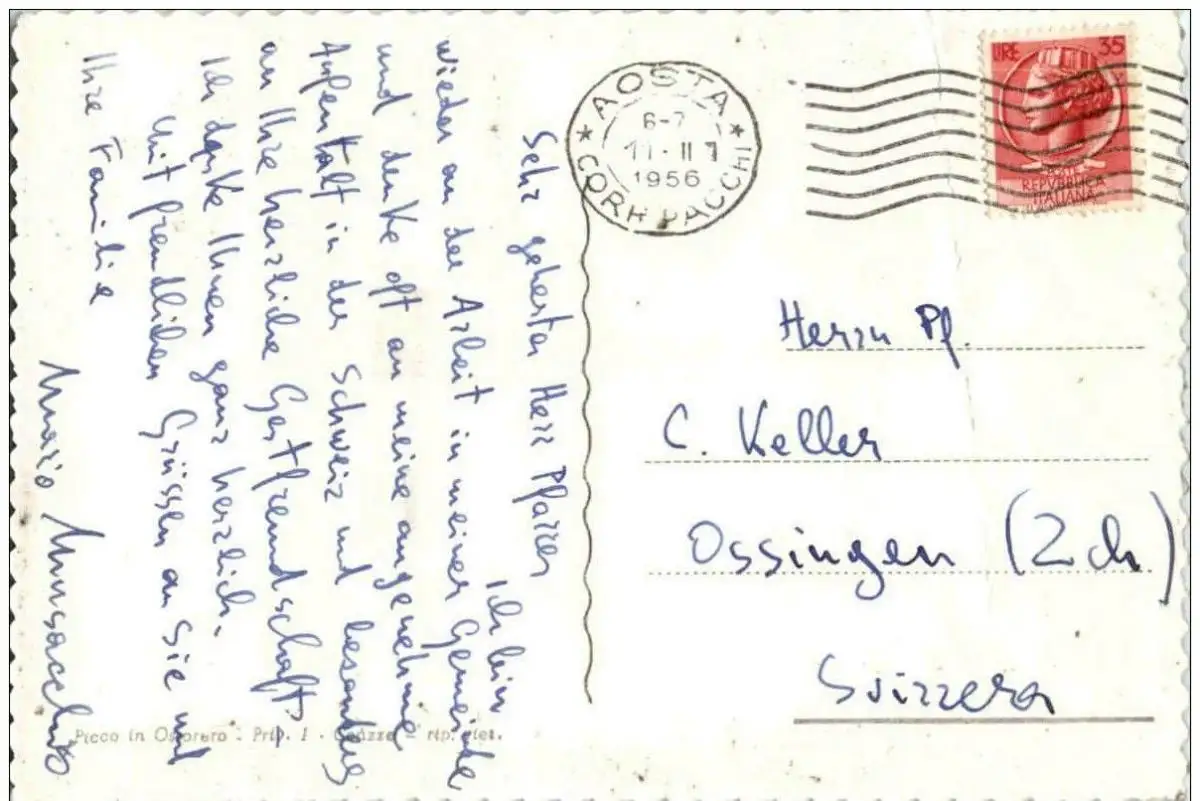 Sehr geherter Herr Pfarrer
Ich bin
wieder an der Arbeit in meiner Gemeinde
und denke oft an meine angenehme
Aufenthalt in der Schweiz und besonders
an Ihre herzliche Gastfreundschaft.
Ich danke Ihnen ganz herzlich.
Mit freundlichen Grüssen an Sie und
Ihre Familie
Mario Musacchio
Picco in
AOSTA
6-7
11 · II
1956
CORR PACCHI
LIRE 35
REPVBBLICA
ITALIANA
Herrn Pf.
C. Keller
Ossingen (Zch)
Svizzera